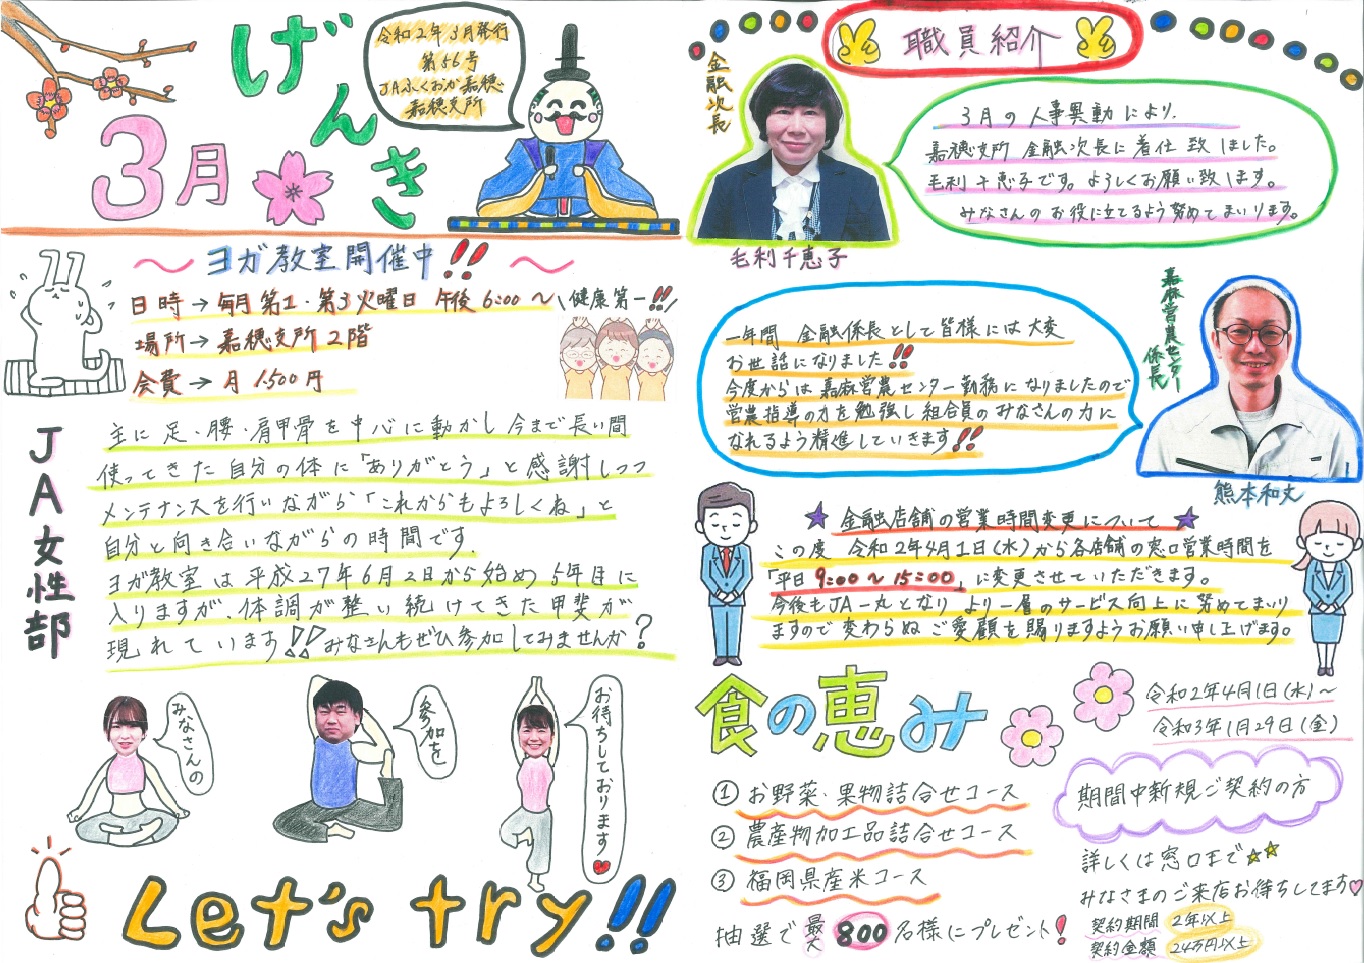 げんき
3月
令和2年3月発行
第56号
JAふくおか嘉穂
嘉穂支所
〜ヨガ教室開催中!!〜
日時→毎月第1・第3火曜日 午後6:00〜
場所→嘉穂支所2階
会費→月1.500円
\健康第一!!/
JA女性部
主に足・腰・肩甲骨を中心に動かし今まで長い間
使ってきた自分の体に「ありがとう」と感謝しつつ
メンテナンスを行いながら「これからもよろしくね」と
自分と向き合いながらの時間です.
ヨガ教室は平成27年6月2日から始め5年目に
入りますが、体調が整い続けてきた甲斐が
現れています!!みなさんもぜひ参加してみませんか?
みなさんの
参加を
お待ちしております♥
Let's try!!
職員紹介
金融次長
毛利千恵子
3月の人事異動により、
嘉穂支所 金融次長に着任致しました。
毛利千恵子です。よろしくお願い致します。
みなさんのお役に立てるよう努めてまいります。
一年間 金融係長として皆様には大変
お世話になりました!!
今度からは嘉麻営農センター勤務になりましたので
営農指導の力を勉強し組合員のみなさんの力に
なれるよう精進していきます!!
嘉麻営農センター
係長
熊本和丈
★金融店舗の営業時間変更について★
この度 令和2年4月1日(水)から各店舗の窓口営業時間を
「平日9:00〜15:00」に変更させていただきます。
今後もJA一丸となり より一層のサービス向上に努めてまいり
ますので変わらぬご愛顧を賜りますようお願い申し上げます。
食の恵み
令和2年4月1日(水)〜
令和3年1月29日(金)
①お野菜・果物詰合せコース
②農産物加工品詰合せコース
③福岡県産米コース
抽選で最大800名様にプレゼント!
期間中新規ご契約の方
詳しくは窓口まで☆☆
みなさまのご来店お待ちしてます♡
契約期間 2年以上
契約金額 24万円以上